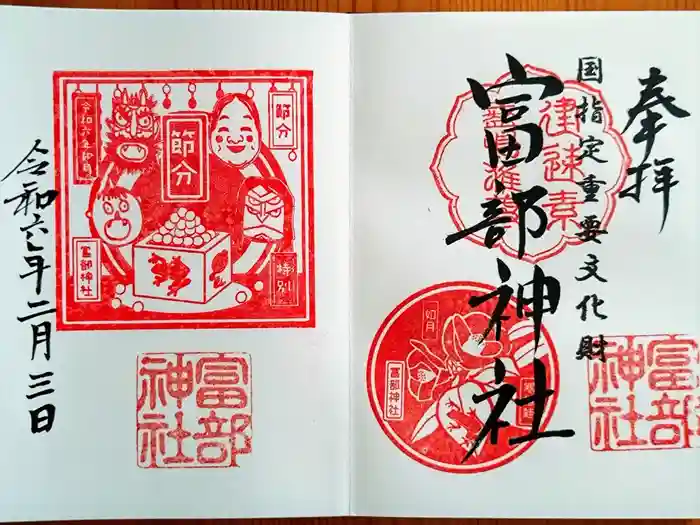 奉拝
国指定重要文化財
富部神社
建速素
如月
富部神社
富部神社
節分
節分
令和六年
富部神社
特別
富部神社
令和六年二月三日